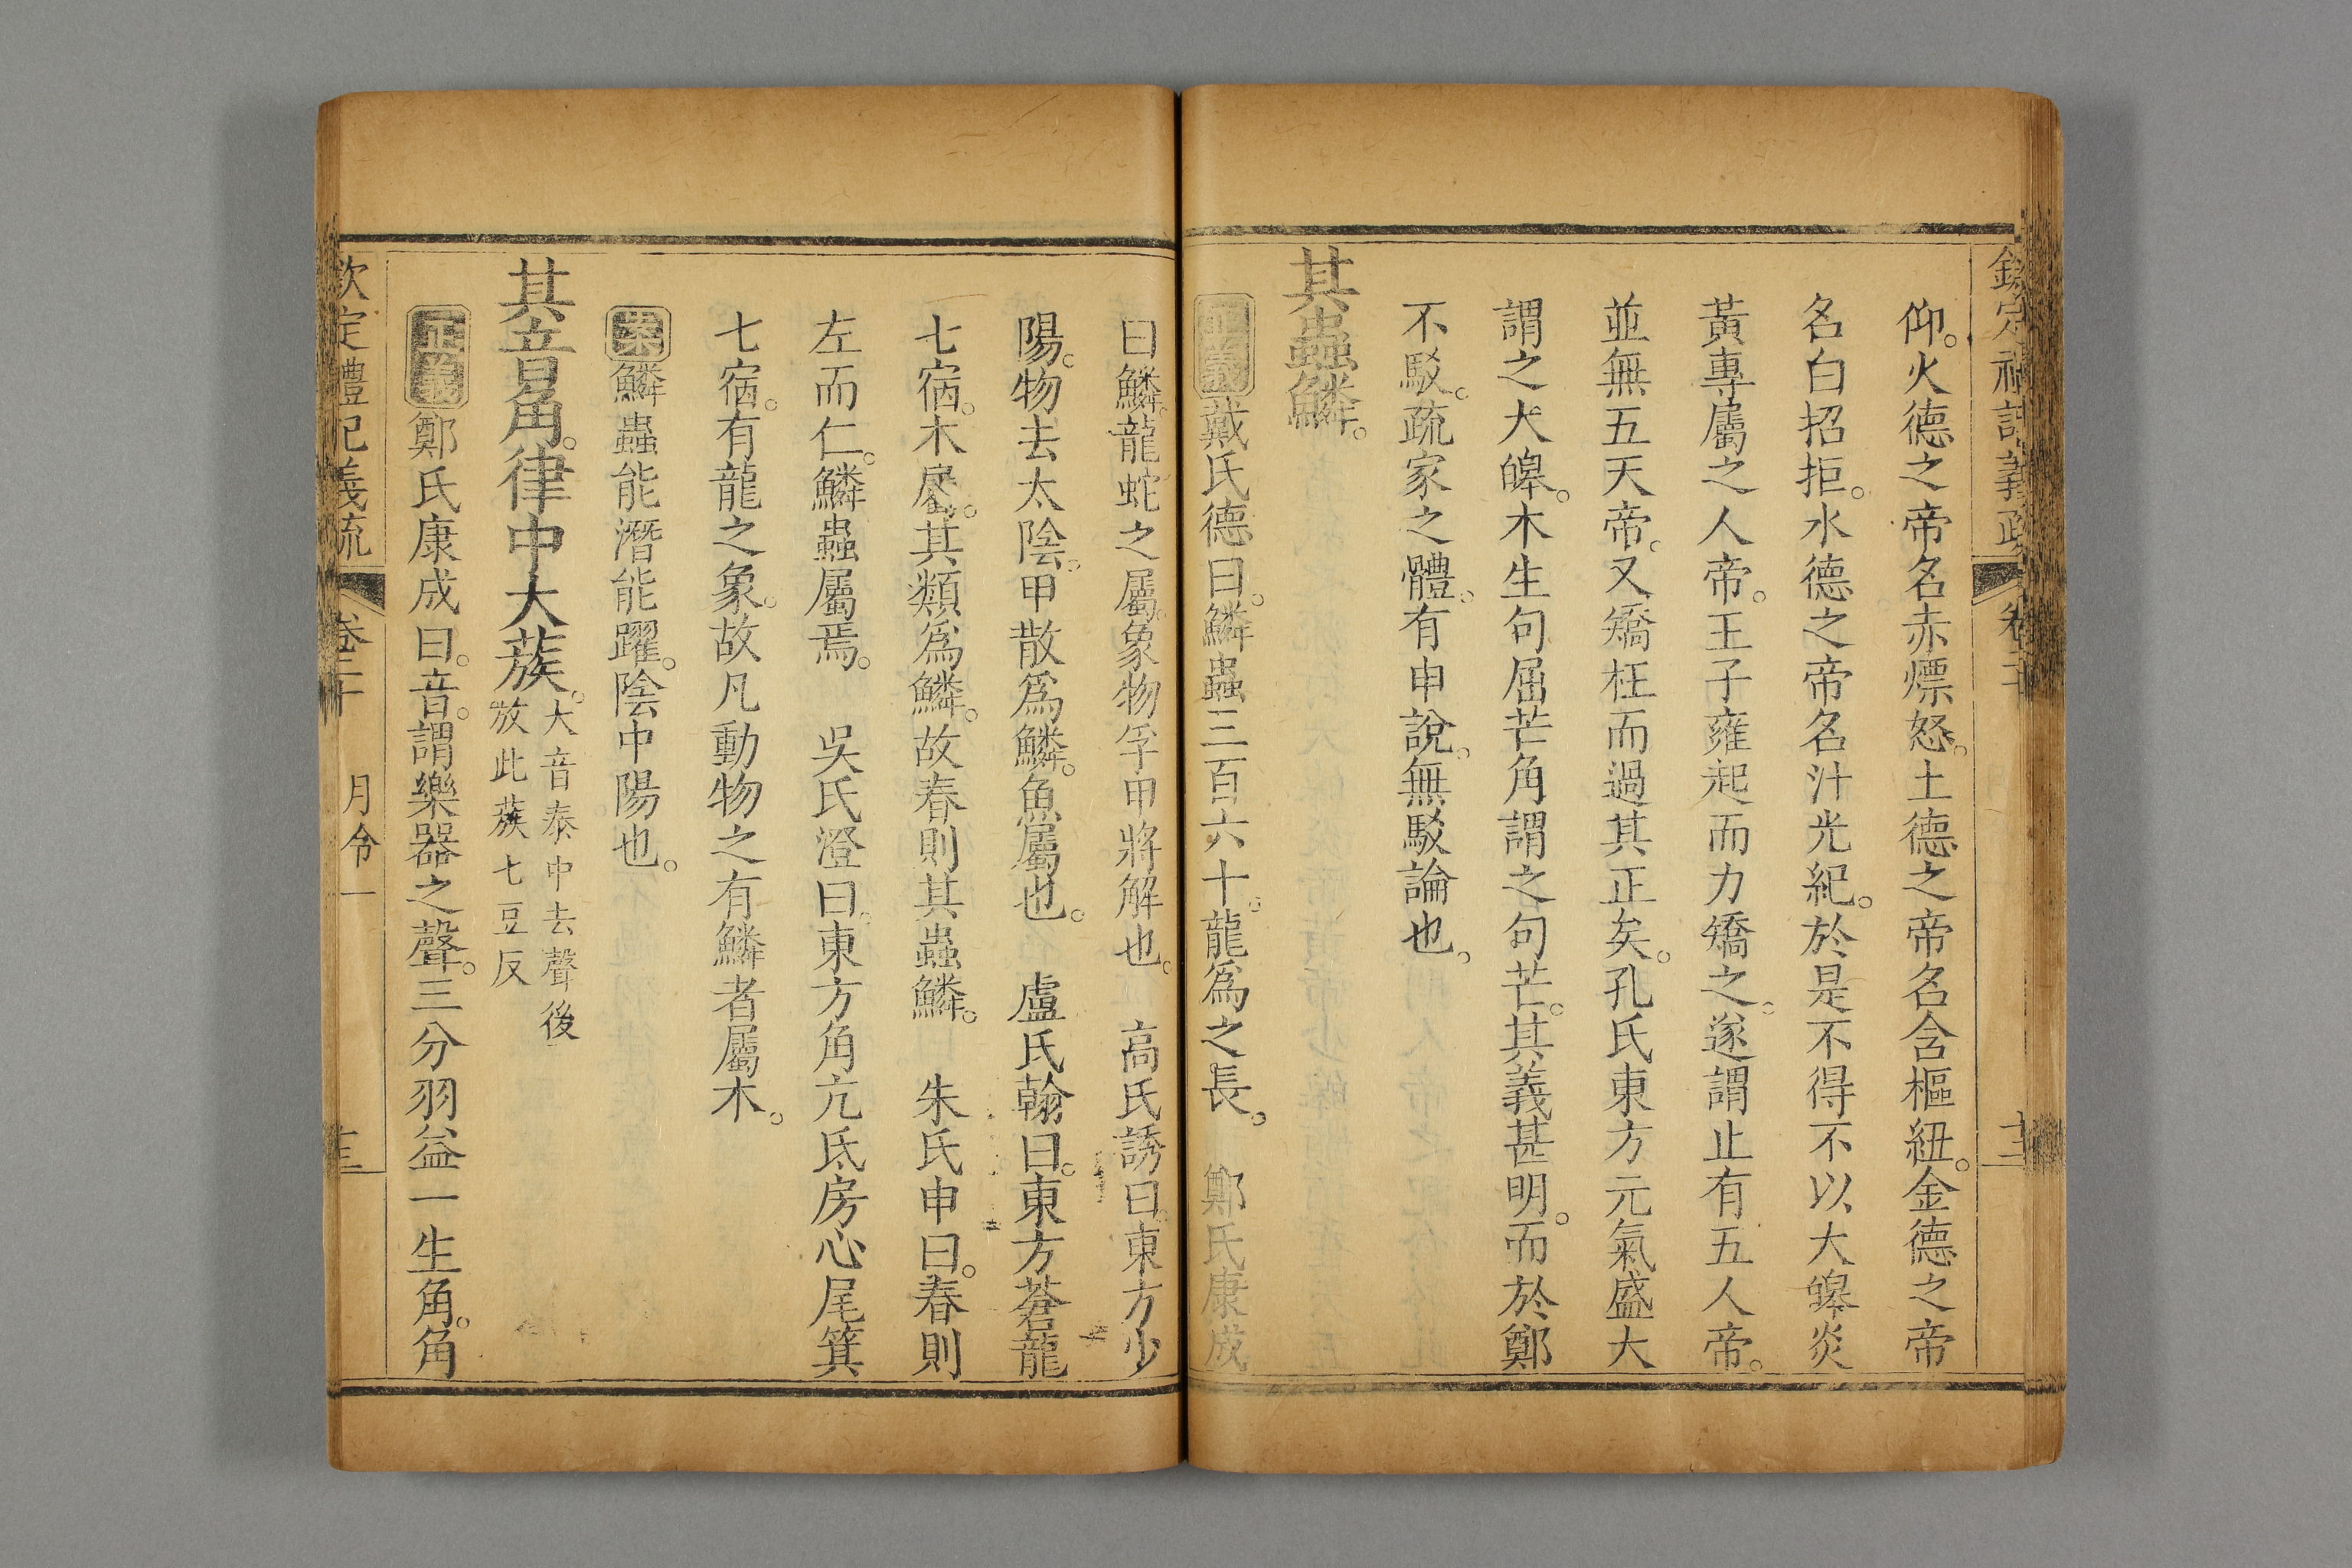 仰。火德之帝名赤熛怒。土德之帝名含樞紐。金德之帝
名白招拒。水德之帝名汁光紀。於是不得不以大皞炎
黃專屬之人帝。王子雍起而力矯之。遂謂止有五人帝。
並無五天帝。又矯枉而過其正矣。孔氏東方元氣盛大
謂之大皞。木生句屈芒角謂之句芒。其義甚明。而於鄭
不駁。疏家之體。有申說。無駁論也。
其蟲鱗。
正義戴氏德曰。鱗蟲三百六十。龍爲之長。 鄭氏康成
曰鱗。龍蛇之屬。象物孚甲將解也。 高氏誘曰。東方少
陽。物去太陰。甲散爲鱗。魚屬也。 盧氏翰曰。東方蒼龍
七宿。木屬。其類爲鱗。故春則其蟲鱗。 朱氏申曰。春則
左而仁。鱗蟲屬焉。 吳氏澄曰。東方角亢氐房心尾箕
七宿。有龍之象。故凡動物之有鱗者屬木。
案鱗蟲能潛能躍。陰中陽也。
其音角。律中大蔟。大音泰中去聲後
放此蔟七豆反
正義鄭氏康成曰。音。謂樂器之聲。三分羽益一生角。角
欽定禮記義疏 卷二十 月令一